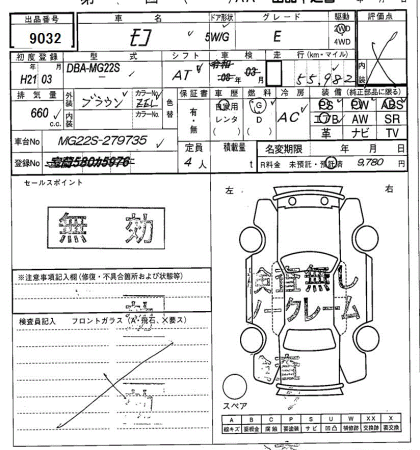 出品番号 車名 ドア形状 グレード 駆動 評価点
9032 モコ 5W/G E 2WD 4WD
初度登録 型式 シフト 車検 走行(km・マイル) 内装
年 月
H21 03 DBA-MG22S AT 08 年 03 月 55,982
排気量 外装 ブラウン カラーNo. Z6L 色替 保証書 車歴 燃料 冷房 装備 (純正部品に限る)
660 c.c. 内装 カラーNo. 有・無 自家用 レンタ G D AC PS PW ABS
エアB AW SR
革 ナビ TV
車台No MG22S-279735
登録No 580 5976
定員 4人 積載量 t 名変期限 年 月 日
R料金 未預託・預託済 9,780 円
セールスポイント
無効
左 右
※注意事項記入欄(修復・不具合箇所および状態等)
検査員記入 フロントガラス (A・飛石、X要ス)
検査無し
ノークレーム
検査
スペア
A B C P S U W XX X
線キズ 要板金 腐蝕 要塗装 サビ 凹凸 補修跡 交換跡 要交換